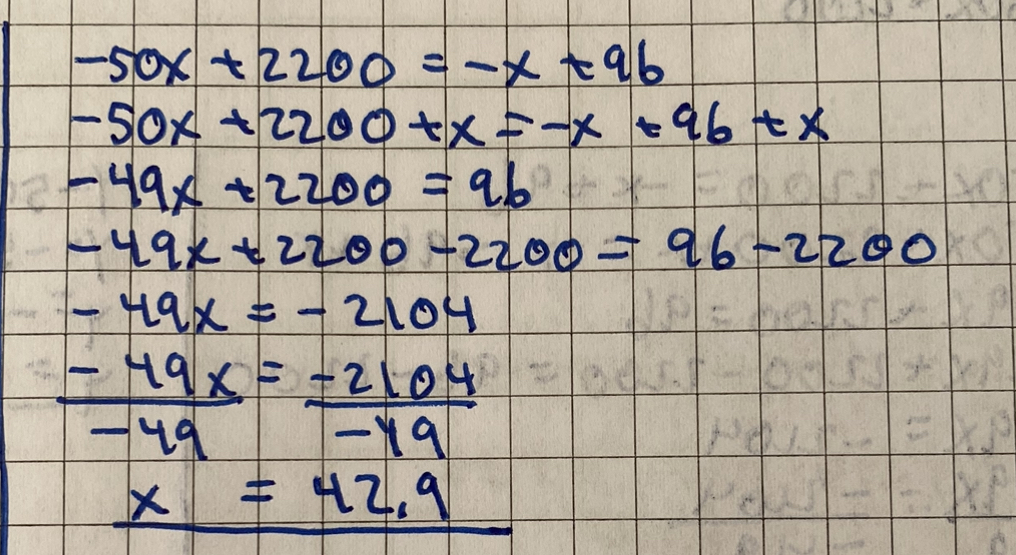 -50x + 2200 = -x + 96
-50x + 2200 + x = -x + 96 + x
-49x + 2200 = 96
-49x + 2200 - 2200 = 96 - 2200
-49x = -2104
-49x = -2104
-49 -49
x = 42,9